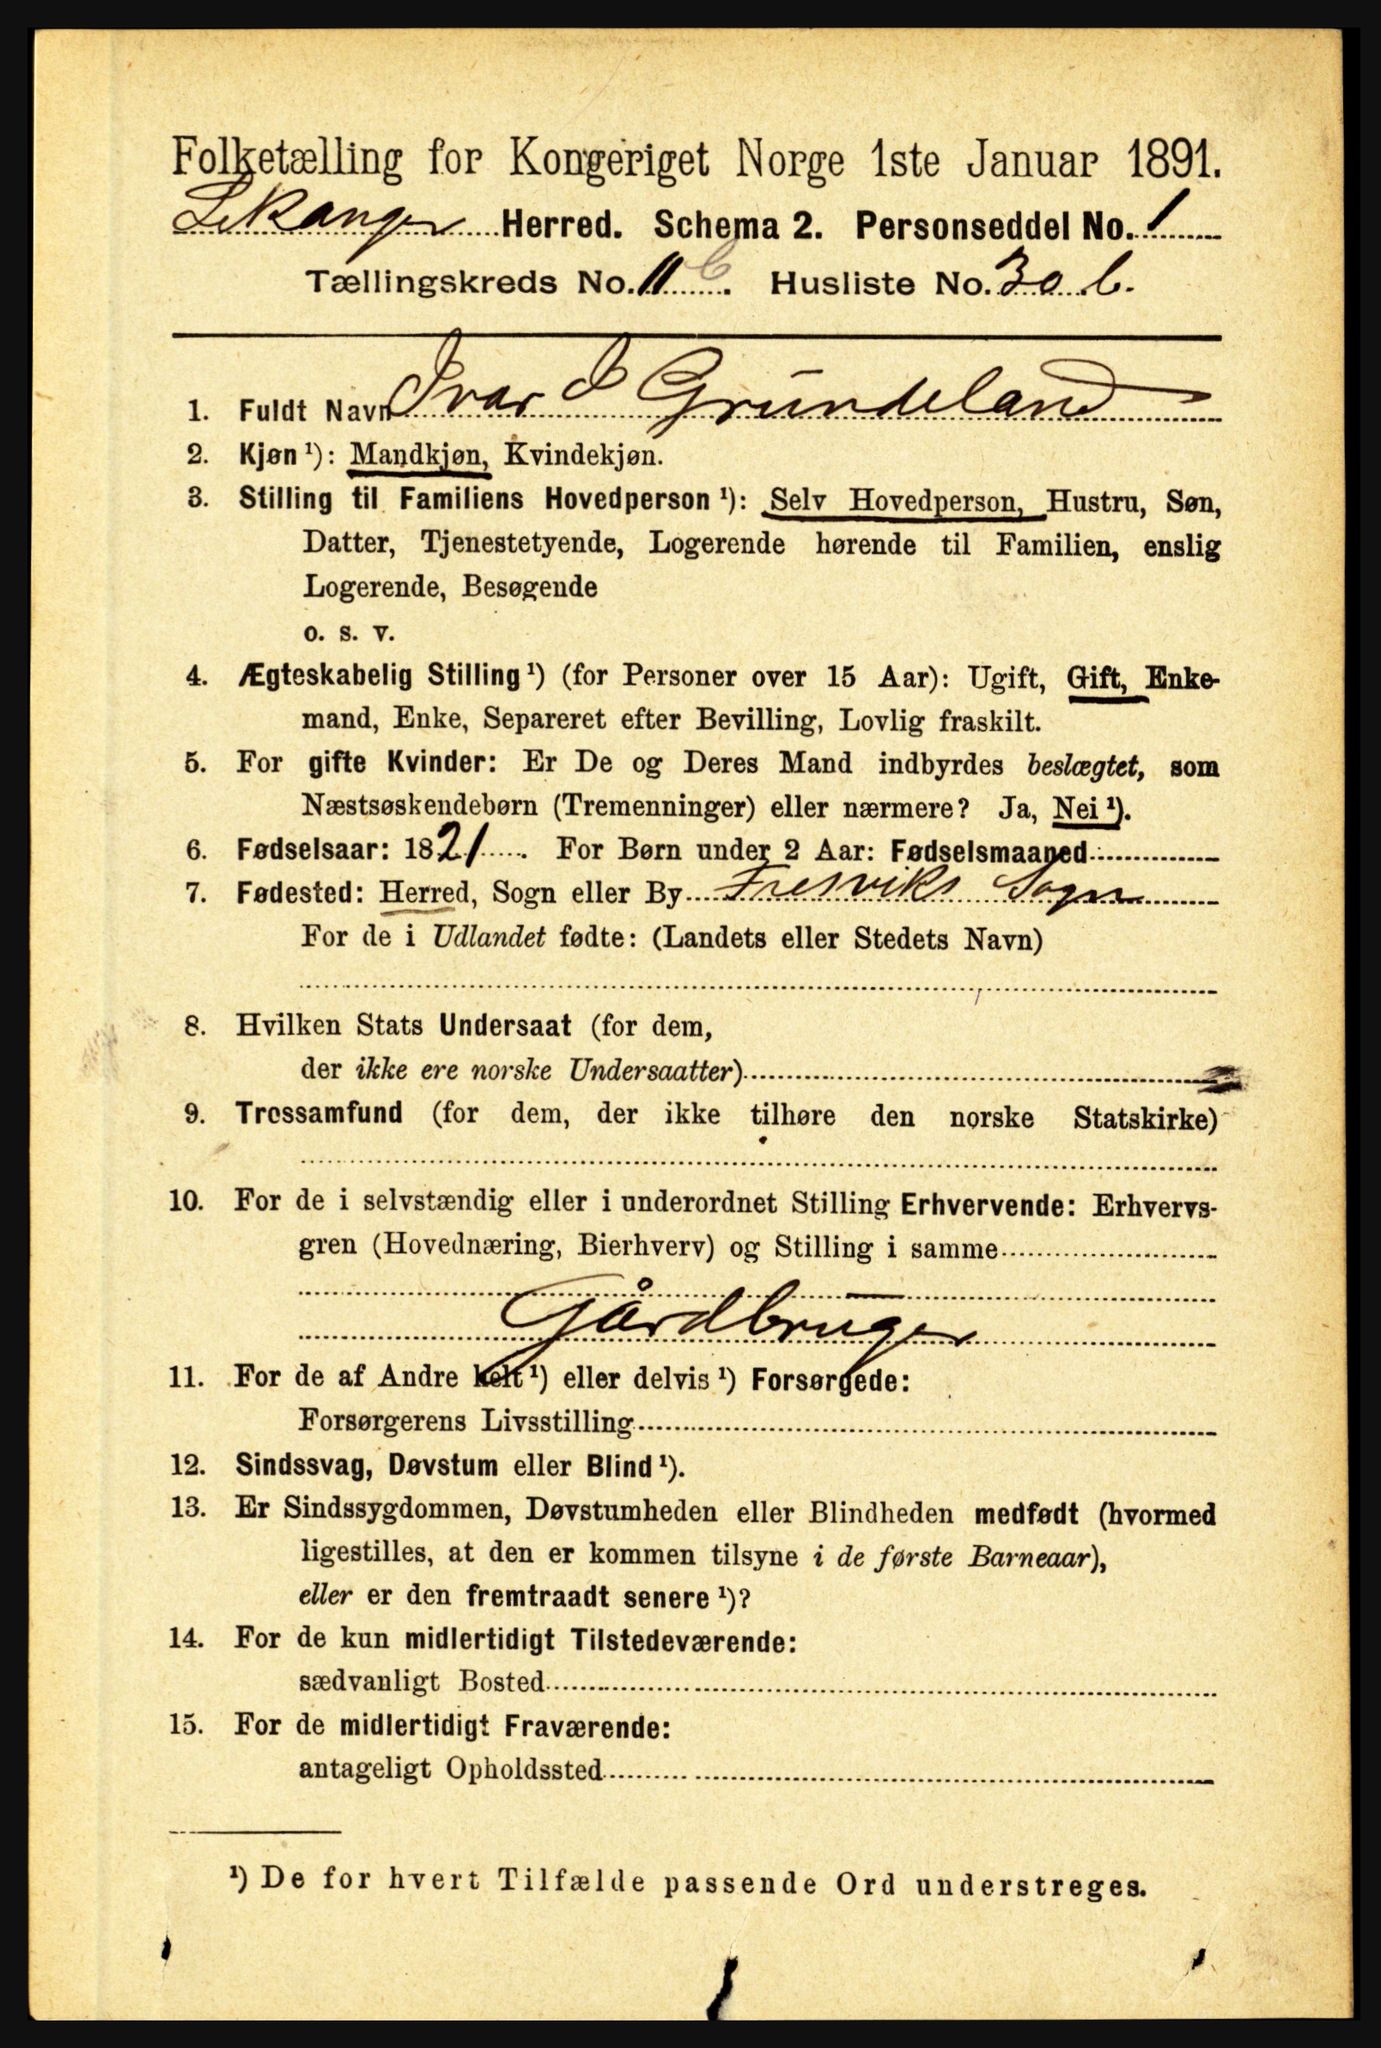 Folketælling for Kongeriget Norge 1ste Januar 1891.
Leikanger Herred. Schema 2. Personseddel No. 1
Tællingskreds No. 11 C. Husliste No. 30 b.
1. Fuldt Navn Ivar I Grundeland
2. Kjøn ¹): Mandkjøn, Kvindekjøn.
3. Stilling til Familiens Hovedperson ¹): Selv Hovedperson, Hustru, Søn,
Datter, Tjenestetyende, Logerende hørende til Familien, enslig
Logerende, Besøgende
o. s. v.
4. Ægteskabelig Stilling ¹) (for Personer over 15 Aar): Ugift, Gift, Enke-
mand, Enke, Separeret efter Bevilling, Lovlig fraskilt.
5. For gifte Kvinder: Er De og Deres Mand indbyrdes beslægtet, som
Næstsøskendebørn (Tremenninger) eller nærmere? Ja, Nei ¹).
6. Fødselsaar: 1821. For Børn under 2 Aar: Fødselsmaaned
7. Fødested: Herred, Sogn eller By Fresviks Sogn
For de i Udlandet fødte: (Landets eller Stedets Navn)
8. Hvilken Stats Undersaat (for dem,
der ikke ere norske Undersaatter)
9. Trossamfund (for dem, der ikke tilhøre den norske Statskirke)
10. For de i selvstændig eller i underordnet Stilling Erhvervende: Erhvervs-
gren (Hovednæring, Bierhverv) og Stilling i samme
Gårdbruger
11. For de af Andre helt ¹) eller delvis ¹) Forsørgede:
Forsørgerens Livsstilling
12. Sindssvag, Døvstum eller Blind ¹).
13. Er Sindssygdommen, Døvstumheden eller Blindheden medfødt (hvormed
ligestilles, at den er kommen tilsyne i de første Barneaar),
eller er den fremtraadt senere ¹)?
14. For de kun midlertidigt Tilstedeværende:
sædvanligt Bosted
15. For de midlertidigt Fraværende:
antageligt Opholdssted
¹) De for hvert Tilfælde passende Ord understreges.